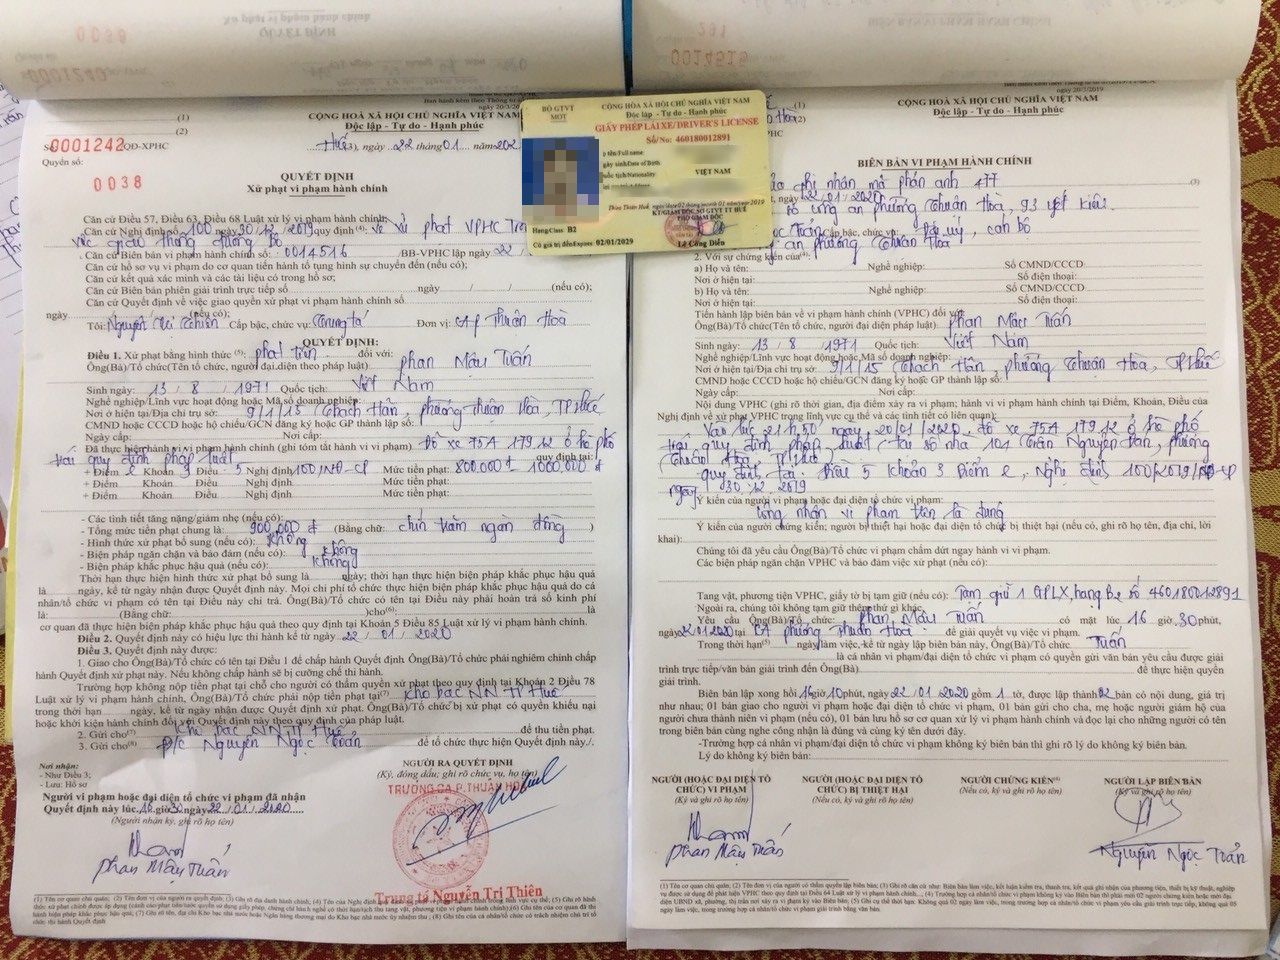 0001240
0038
0014515
291
CỘNG HÒA XÃ HỘI CHỦ NGHĨA VIỆT NAM
Độc lập - Tự do - Hạnh phúc
(1)
(2)
0001242/QĐ-XPHC
Quyển số:
0038
Huế(3), ngày 22 tháng 01 năm 202
QUYẾT ĐỊNH
Xử phạt vi phạm hành chính
Căn cứ Điều 57, Điều 63, Điều 68 Luật xử lý vi phạm hành chính;
Căn cứ Nghị định số 100 ngày 30/12/2019 quy định (4) Về xử phạt VPHC Tron
việc giao thông đường bộ
Căn cứ Biên bản vi phạm hành chính số: 0014516 /BB-VPHC lập ngày 22
Căn cứ hồ sơ vụ vi phạm do cơ quan tiến hành tố tụng hình sự chuyển đến (nếu có);
Căn cứ kết quả xác minh và các tài liệu có trong hồ sơ;
Căn cứ Biên bản phiên giải trình trực tiếp số ngày / / (nếu có);
Căn cứ Quyết định về việc giao quyền xử phạt vi phạm hành chính số
ngày (nếu có);
Tôi: Nguyễn Tri Thiên Cấp bậc, chức vụ: Trung tá Đơn vị: CAP Thuận Hoà
QUYẾT ĐỊNH:
Điều 1. Xử phạt bằng hình thức (5): phạt tiền đối với:
Ông(Bà)/Tổ chức(Tên tổ chức, người đại diện theo pháp luật) phan Mậu Tuấn
Sinh ngày: 13 / 8 / 1971 Quốc tịch: Việt Nam
Nghề nghiệp/Lĩnh vực hoạt động hoặc Mã số doanh nghiệp:
Nơi ở hiện tại/Địa chỉ trụ sở: 9/1/15 Thạch Hãn, phường Thuận Hòa, TP Huế
CMND hoặc CCCD hoặc hộ chiếu/GCN đăng ký hoặc GP thành lập số:
Ngày cấp: Nơi cấp:
Đã thực hiện hành vi vi phạm (ghi tóm tắt hành vi vi phạm) Đỗ xe 75A 179.12 ở hè phố
trái quy định pháp luật quy định tại:
+ Điểm e Khoản 3 Điều 5 Nghị định 100/NĐ-CP Mức tiền phạt: 800.000đ 1000.000đ
+ Điểm Khoản Điều Nghị định Mức tiền phạt:
+ Điểm Khoản Điều Nghị định Mức tiền phạt:
- Các tình tiết tăng nặng/giảm nhẹ (nếu có):
- Tổng mức tiền phạt chung là: 900.000 đ (Bằng chữ: chín trăm ngàn đồng )
- Hình thức xử phạt bổ sung (nếu có): không
- Biện pháp ngăn chặn và bảo đảm (nếu có): không
- Biện pháp khắc phục hậu quả (nếu có): không
Thời hạn thực hiện hình thức xử phạt bổ sung là ngày; thời hạn thực hiện biện pháp khắc phục hậu quả
là ngày, kể từ ngày nhận được Quyết định này. Mọi chi phí tổ chức thực hiện biện pháp khắc phục hậu quả do cá
nhân/tổ chức vi phạm có tên tại Điều này chi trả. Ông(Bà)/Tổ chức có tên tại Điều này phải hoàn trả số kinh phí
là: (Bằng chữ: )cho(6): là
cơ quan đã thực hiện biện pháp khắc phục hậu quả theo quy định tại Khoản 5 Điều 85 Luật xử lý vi phạm hành chính.
Điều 2. Quyết định này có hiệu lực thi hành kể từ ngày 22 / 01 / 2020
Điều 3. Quyết định này được:
1. Giao cho Ông(Bà)/Tổ chức có tên tại Điều 1 để chấp hành Quyết định. Ông(Bà)/Tổ chức phải nghiêm chỉnh chấp
hành Quyết định xử phạt này. Nếu không chấp hành sẽ bị cưỡng chế thi hành.
Trường hợp không nộp tiền phạt tại chỗ cho người có thẩm quyền xử phạt theo quy định tại Khoản 2 Điều 78
Luật xử lý vi phạm hành chính, Ông(Bà)/Tổ chức phải nộp tiền phạt tại(7) Kho bạc NN TP Huế
trong thời hạn ngày, kể từ ngày nhận được Quyết định xử phạt. Ông(Bà)/Tổ chức bị xử phạt có quyền khiếu nại
hoặc khởi kiện hành chính đối với Quyết định này theo quy định của pháp luật.
2. Gửi cho(7) Kho bạc NN TP Huế để thu tiền phạt.
3. Gửi cho(8) Đ/c Nguyễn Ngọc Toản để tổ chức thực hiện Quyết định này./.
Nơi nhận:
- Như Điều 3;
- Lưu: Hồ sơ
NGƯỜI RA QUYẾT ĐỊNH
(Ký, đóng dấu; ghi rõ chức vụ, họ tên)
TRƯỞNG CA P.THUẬN HÒA
Người vi phạm hoặc đại diện tổ chức vi phạm đã nhận
Quyết định này lúc 16 giờ 30 ngày 22 / 01 / 2020
(Người nhận ký, ghi rõ họ tên)
phan Mậu Tuấn
Trung tá Nguyễn Tri Thiên
BỘ GTVT
MOT
CỘNG HÒA XÃ HỘI CHỦ NGHĨA VIỆT NAM
Độc lập - Tự do - Hạnh phúc
GIẤY PHÉP LÁI XE/DRIVER'S LICENSE
Số/No: 460180012891
tên/Full name:
sinh/Date of Birth
tịch/Nationality VIỆT NAM
Thừa Thiên Huế, ngày/date 02 tháng/month 01 năm/year 2019
KT/GIÁM ĐỐC SỞ GTVT TT HUẾ
PHÓ GIÁM ĐỐC
Hạng/Class: B2
Có giá trị đến/Expires: 02/01/2029
Lê Công Diễn
ngày 20/3/2019
CỘNG HÒA XÃ HỘI CHỦ NGHĨA VIỆT NAM
Độc lập - Tự do - Hạnh phúc
(1)
BIÊN BẢN VI PHẠM HÀNH CHÍNH
ghi nhận mã phản ánh 477 (3)
22/01/2020
công an phường Thuận Hoà, 93 yết kiêu
Cấp bậc, chức vụ: Đại úy, cán bộ
an phường Thuận Hoà
2. Với sự chứng kiến của(4):
a) Họ và tên: Nghề nghiệp: Số CMND/CCCD.
Nơi ở hiện tại: Số điện thoại:
b) Họ và tên: Nghề nghiệp: Số CMND/CCCD.
Nơi ở hiện tại: Số điện thoại:
Tiến hành lập biên bản về vi phạm hành chính (VPHC) đối với:
Ông(Bà)/Tổ chức(Tên tổ chức, người đại diện pháp luật): phan Mậu Tuấn
Sinh ngày: 13 / 8 / 1971 Quốc tịch: Việt Nam
Nghề nghiệp/Lĩnh vực hoạt động hoặc Mã số doanh nghiệp:
Nơi ở hiện tại/Địa chỉ trụ sở: 9/1/15 Thạch Hãn, phường Thuận Hòa, TP Huế
CMND hoặc CCCD hoặc hộ chiếu/GCN đăng ký hoặc GP thành lập số:
Ngày cấp: Nơi cấp:
Nội dung VPHC (ghi rõ thời gian, địa điểm xảy ra vi phạm; hành vi vi phạm hành chính tại Điểm, Khoản, Điều của
Nghị định về xử phạt VPHC trong lĩnh vực cụ thể và các tình tiết có liên quan):
Vào lúc 21h50' ngày 20/01/2020, đỗ xe 75A 179.12 ở hè phố
trái quy định pháp luật (Tại số nhà 101 Trần Nguyên Đán, phường
Thuận Hoà, TP Huế)
quy định tại Điều 5 Khoản 3 Điểm e, Nghị định 100/2019/NĐ-CP
ngày 30.12.2019
Ý kiến của người vi phạm hoặc đại diện tổ chức vi phạm:
Công nhận vi phạm trên là đúng
Ý kiến của người chứng kiến; người bị thiệt hại hoặc đại diện tổ chức bị thiệt hại (nếu có, ghi rõ họ tên, địa chỉ, lời
khai):
Chúng tôi đã yêu cầu Ông(Bà)/Tổ chức vi phạm chấm dứt ngay hành vi vi phạm.
Các biện pháp ngăn chặn VPHC và bảo đảm việc xử phạt (nếu có):
Tang vật, phương tiện VPHC, giấy tờ bị tạm giữ (nếu có): Tạm giữ 1 GPLX, hạng B2 số 460180012891
Ngoài ra, chúng tôi không tạm giữ thêm thứ gì khác.
Yêu cầu Ông(Bà)/Tổ chức: phan Mậu Tuấn có mặt lúc 16 giờ 30 phút,
ngày 22/01/2020 tại CA phường Thuận Hoà để giải quyết vụ việc vi phạm.
Trong thời hạn(5) ngày làm việc, kể từ ngày lập biên bản này, Ông(Bà)/Tổ chức Tuấn
là cá nhân vi phạm/đại diện tổ chức vi phạm có quyền gửi văn bản yêu cầu được giải
trình trực tiếp/văn bản giải trình đến Ông(Bà) để thực hiện quyền
giải trình.
Biên bản lập xong hồi 16 giờ 10 phút, ngày 22 / 01 / 2020 gồm 1 tờ, được lập thành 02 bản có nội dung, giá trị
như nhau; 01 bản giao cho người vi phạm hoặc đại diện tổ chức vi phạm, 01 bản gửi cho cha, mẹ hoặc người giám hộ của
người chưa thành niên vi phạm (nếu có), 01 bản lưu hồ sơ cơ quan xử lý vi phạm hành chính và đọc lại cho những người có tên
trong biên bản cùng nghe công nhận là đúng và cùng ký tên dưới đây.
-Trường hợp cá nhân vi phạm/đại diện tổ chức vi phạm không ký biên bản thì ghi rõ lý do không ký biên bản.
Lý do không ký biên bản:
NGƯỜI (HOẶC ĐẠI DIỆN TỔ CHỨC) VI PHẠM
(Ký và ghi rõ họ tên)
NGƯỜI (HOẶC ĐẠI DIỆN TỔ CHỨC) BỊ THIỆT HẠI
(Nếu có, ký và ghi rõ họ tên)
NGƯỜI CHỨNG KIẾN(4)
(Nếu có, ký và ghi rõ họ tên)
NGƯỜI LẬP BIÊN BẢN
(Ký và ghi rõ họ tên)
phan Mậu Tuấn
Nguyễn Ngọc Toản